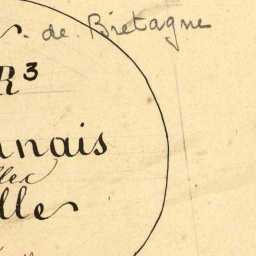 de. Bretagne
R³
nnais
lles
lle